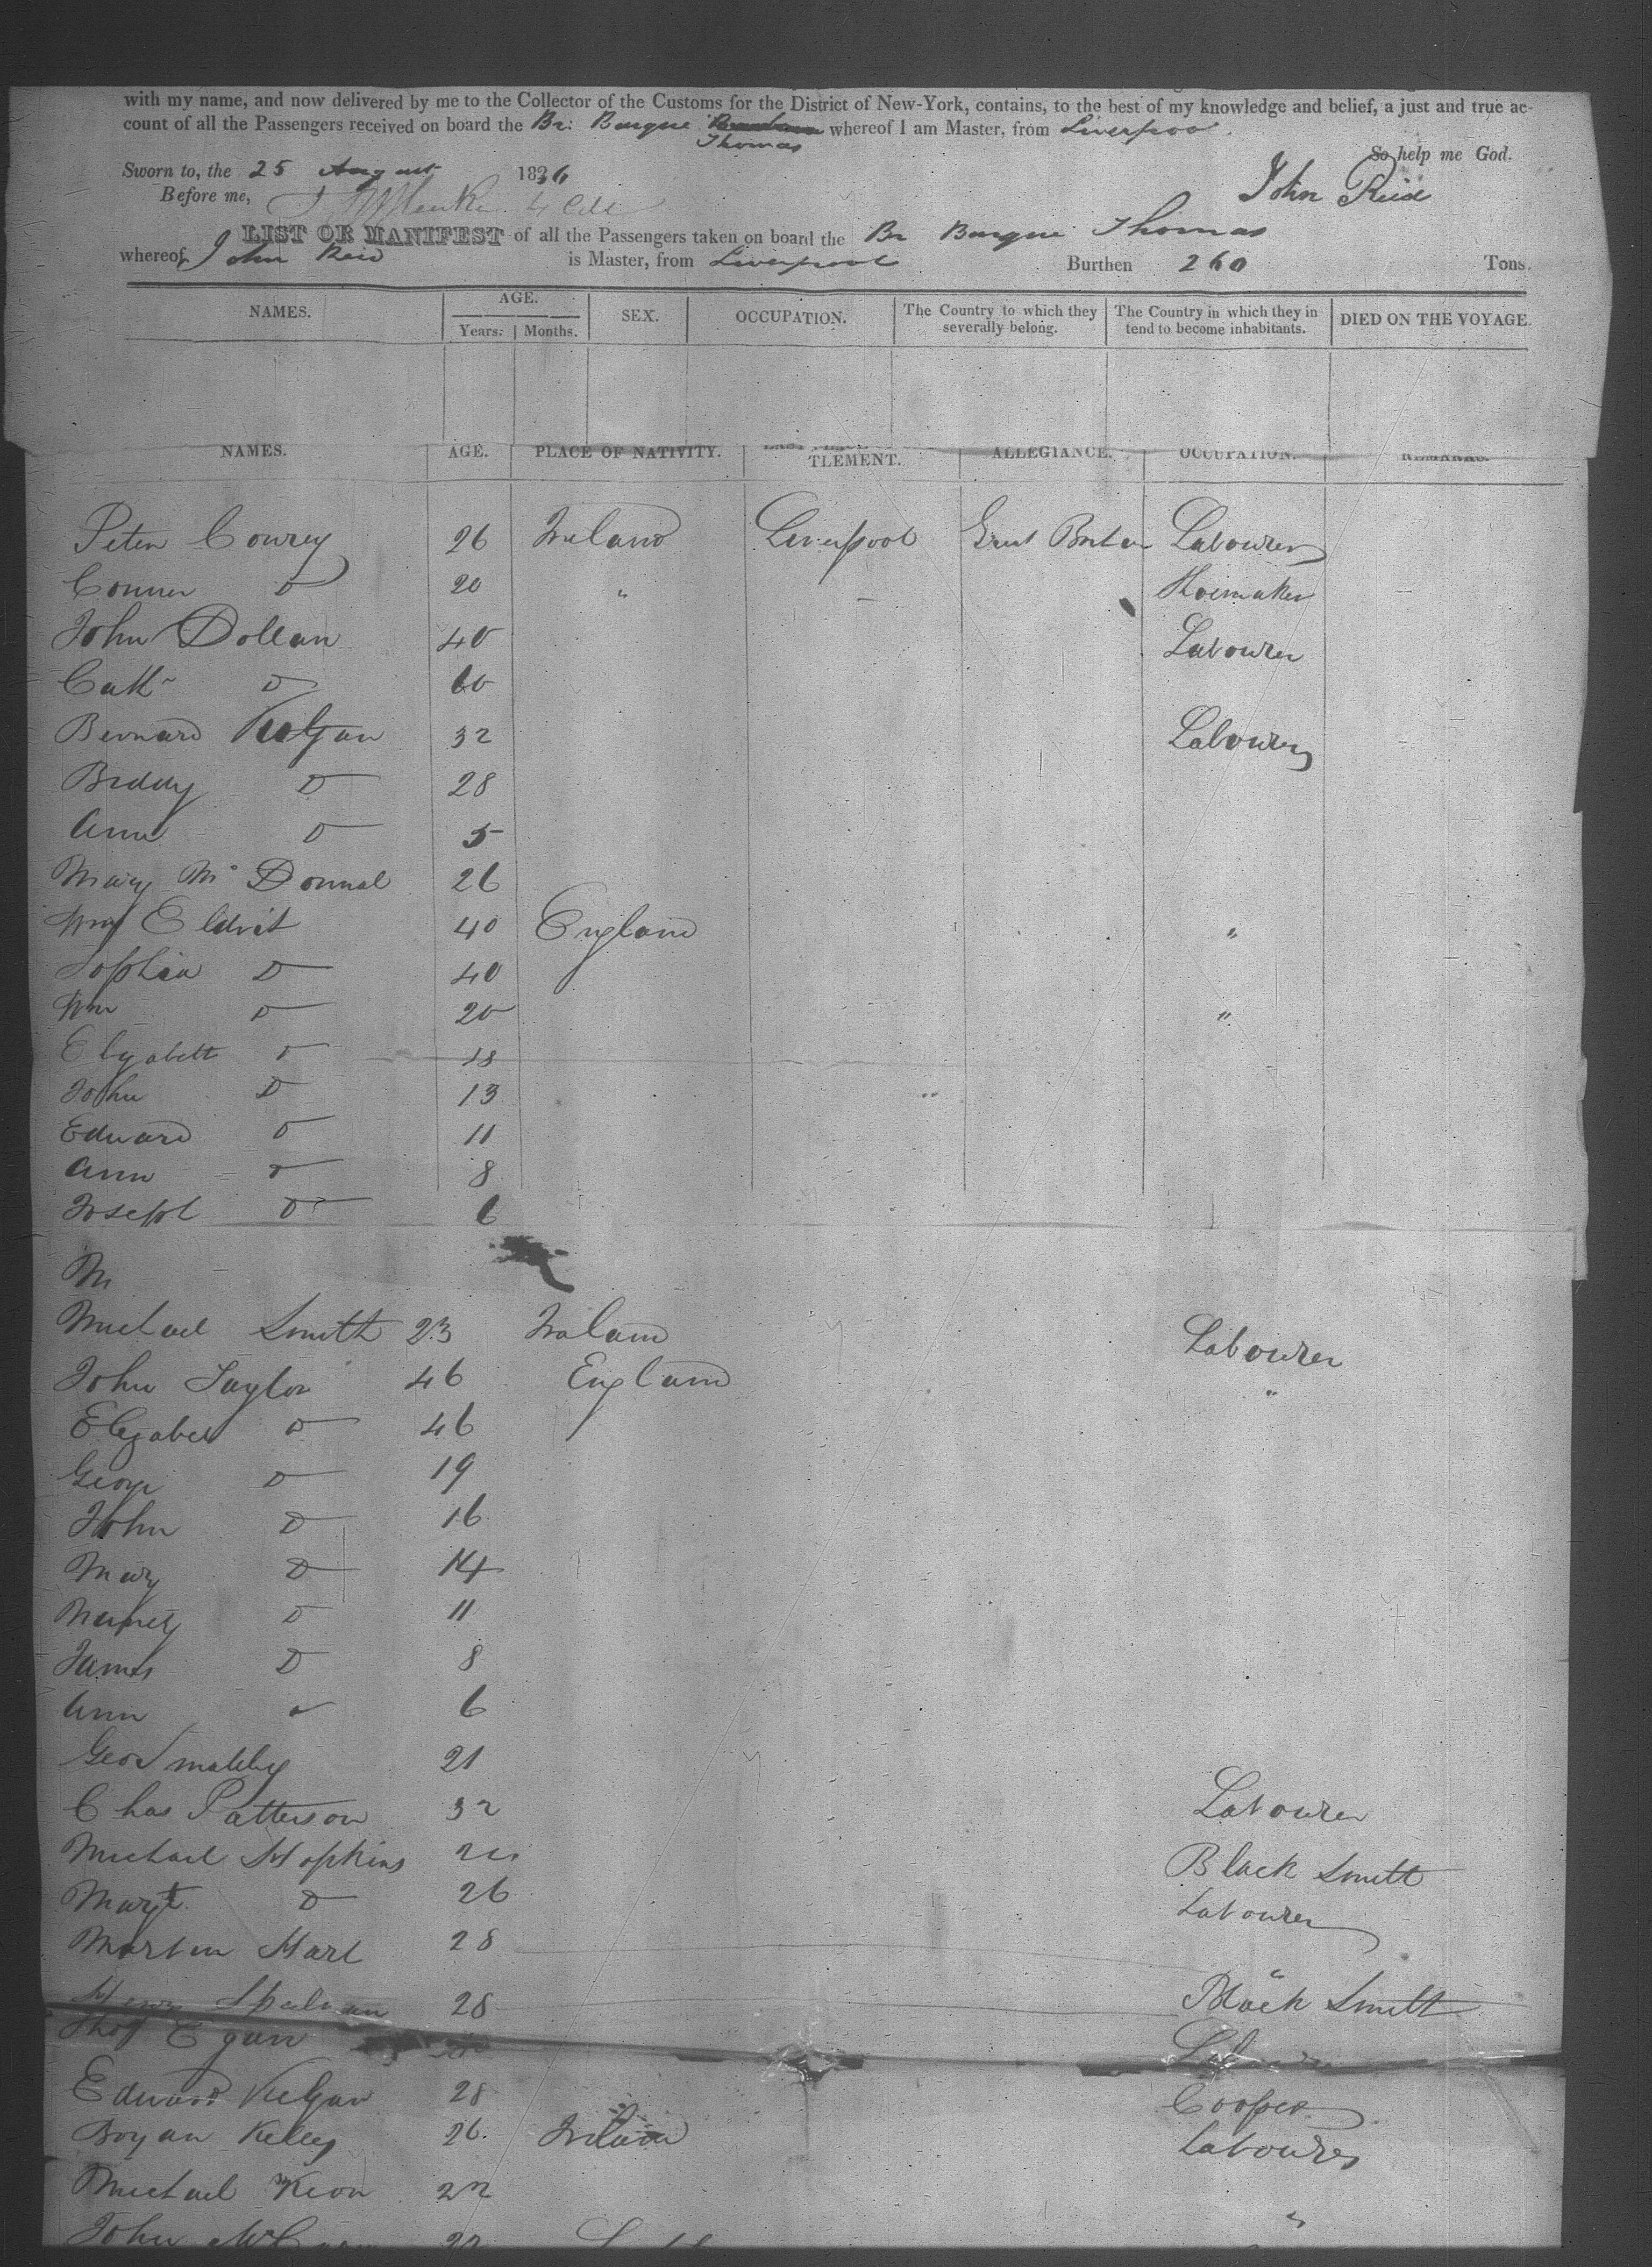 with my name, and now delivered by me to the Collector of the Customs for the District of New-York, contains, to the best of my knowledge and belief, a just and true ac-
count of all the Passengers received on board the Br: Barque Thomas whereof I am Master, from Liverpool
So help me God.
Sworn to, the 25 August 1836
John Reid
Before me,
LIST OR MANIFEST of all the Passengers taken on board the Br Barque Thomas
whereof John Reid is Master, from Liverpool Burthen 260 Tons.
NAMES. AGE. Years. Months. SEX. OCCUPATION. The Country to which they severally belong. The Country in which they in tend to become inhabitants. DIED ON THE VOYAGE.
NAMES. AGE. PLACE OF NATIVITY. TLEMENT. ALLEGIANCE. OCCUPATION. REMARKS.
Peter Conrey 26 Ireland Liverpool Great Britain Labourer
Conner D 20 " Shoemaker
John Dollan 40 Labourer
Cath D 60
Bernard 32 Labourer
Biddy D 28
Ann D 5
Mary Mc Donnal 26
Wm Eldrit 40 England "
Sophia D 40
Wm D 20 "
Elizabett D 18
John D 13
Edward D 11
Ann D 8
Joseph D 6
M
Michael Smith 23 Ireland Labourer
John Taylor 46 England "
Elizabeth D 46
George D 19
John D 16
Mary D 14
Nancy D 11
James D 8
Ann D 6
Geo Smalley 21
Chas Patterson 32 Labourer
Michael Hopkins Black Smith
Margt D 26 Labourer
Martin Hart 28 "
Henry Spelman 28 Black Smith
Thos Egan
Edward 28 Cooper
Bryan Kelley 26 Ireland Labourer
Michael Keon 22 "
John 22